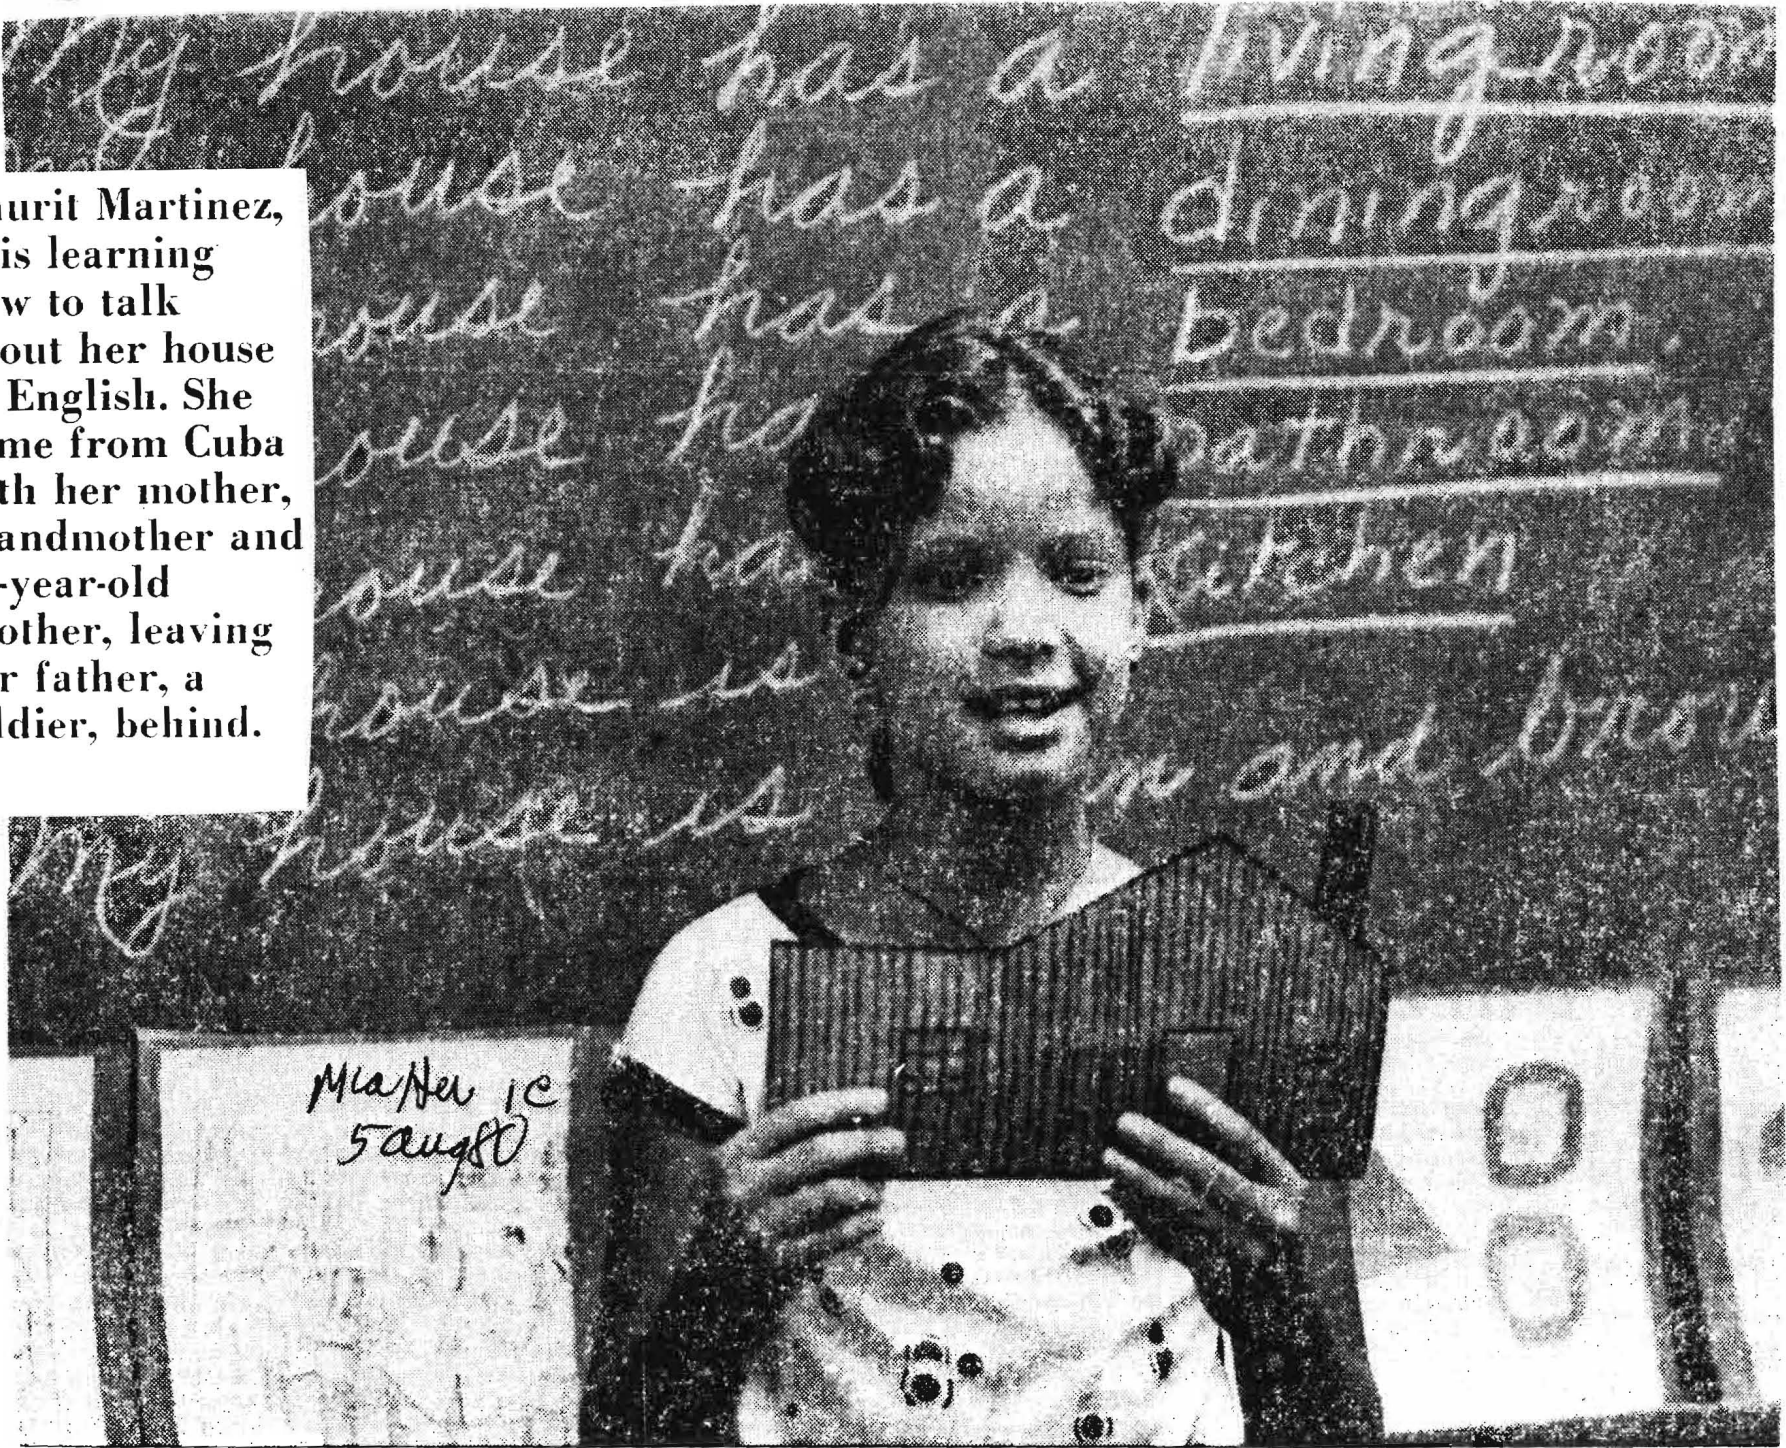 My house has a livingroom
house has a diningroom
house has a bedroom.
house ha bathroom
house ha kitchen
house is
n and brow
my house is
urit Martinez,
is learning
w to talk
out her house
English. She
me from Cuba
th her mother,
andmother and
-year-old
other, leaving
r father, a
ldier, behind.
1C
5 aug 80